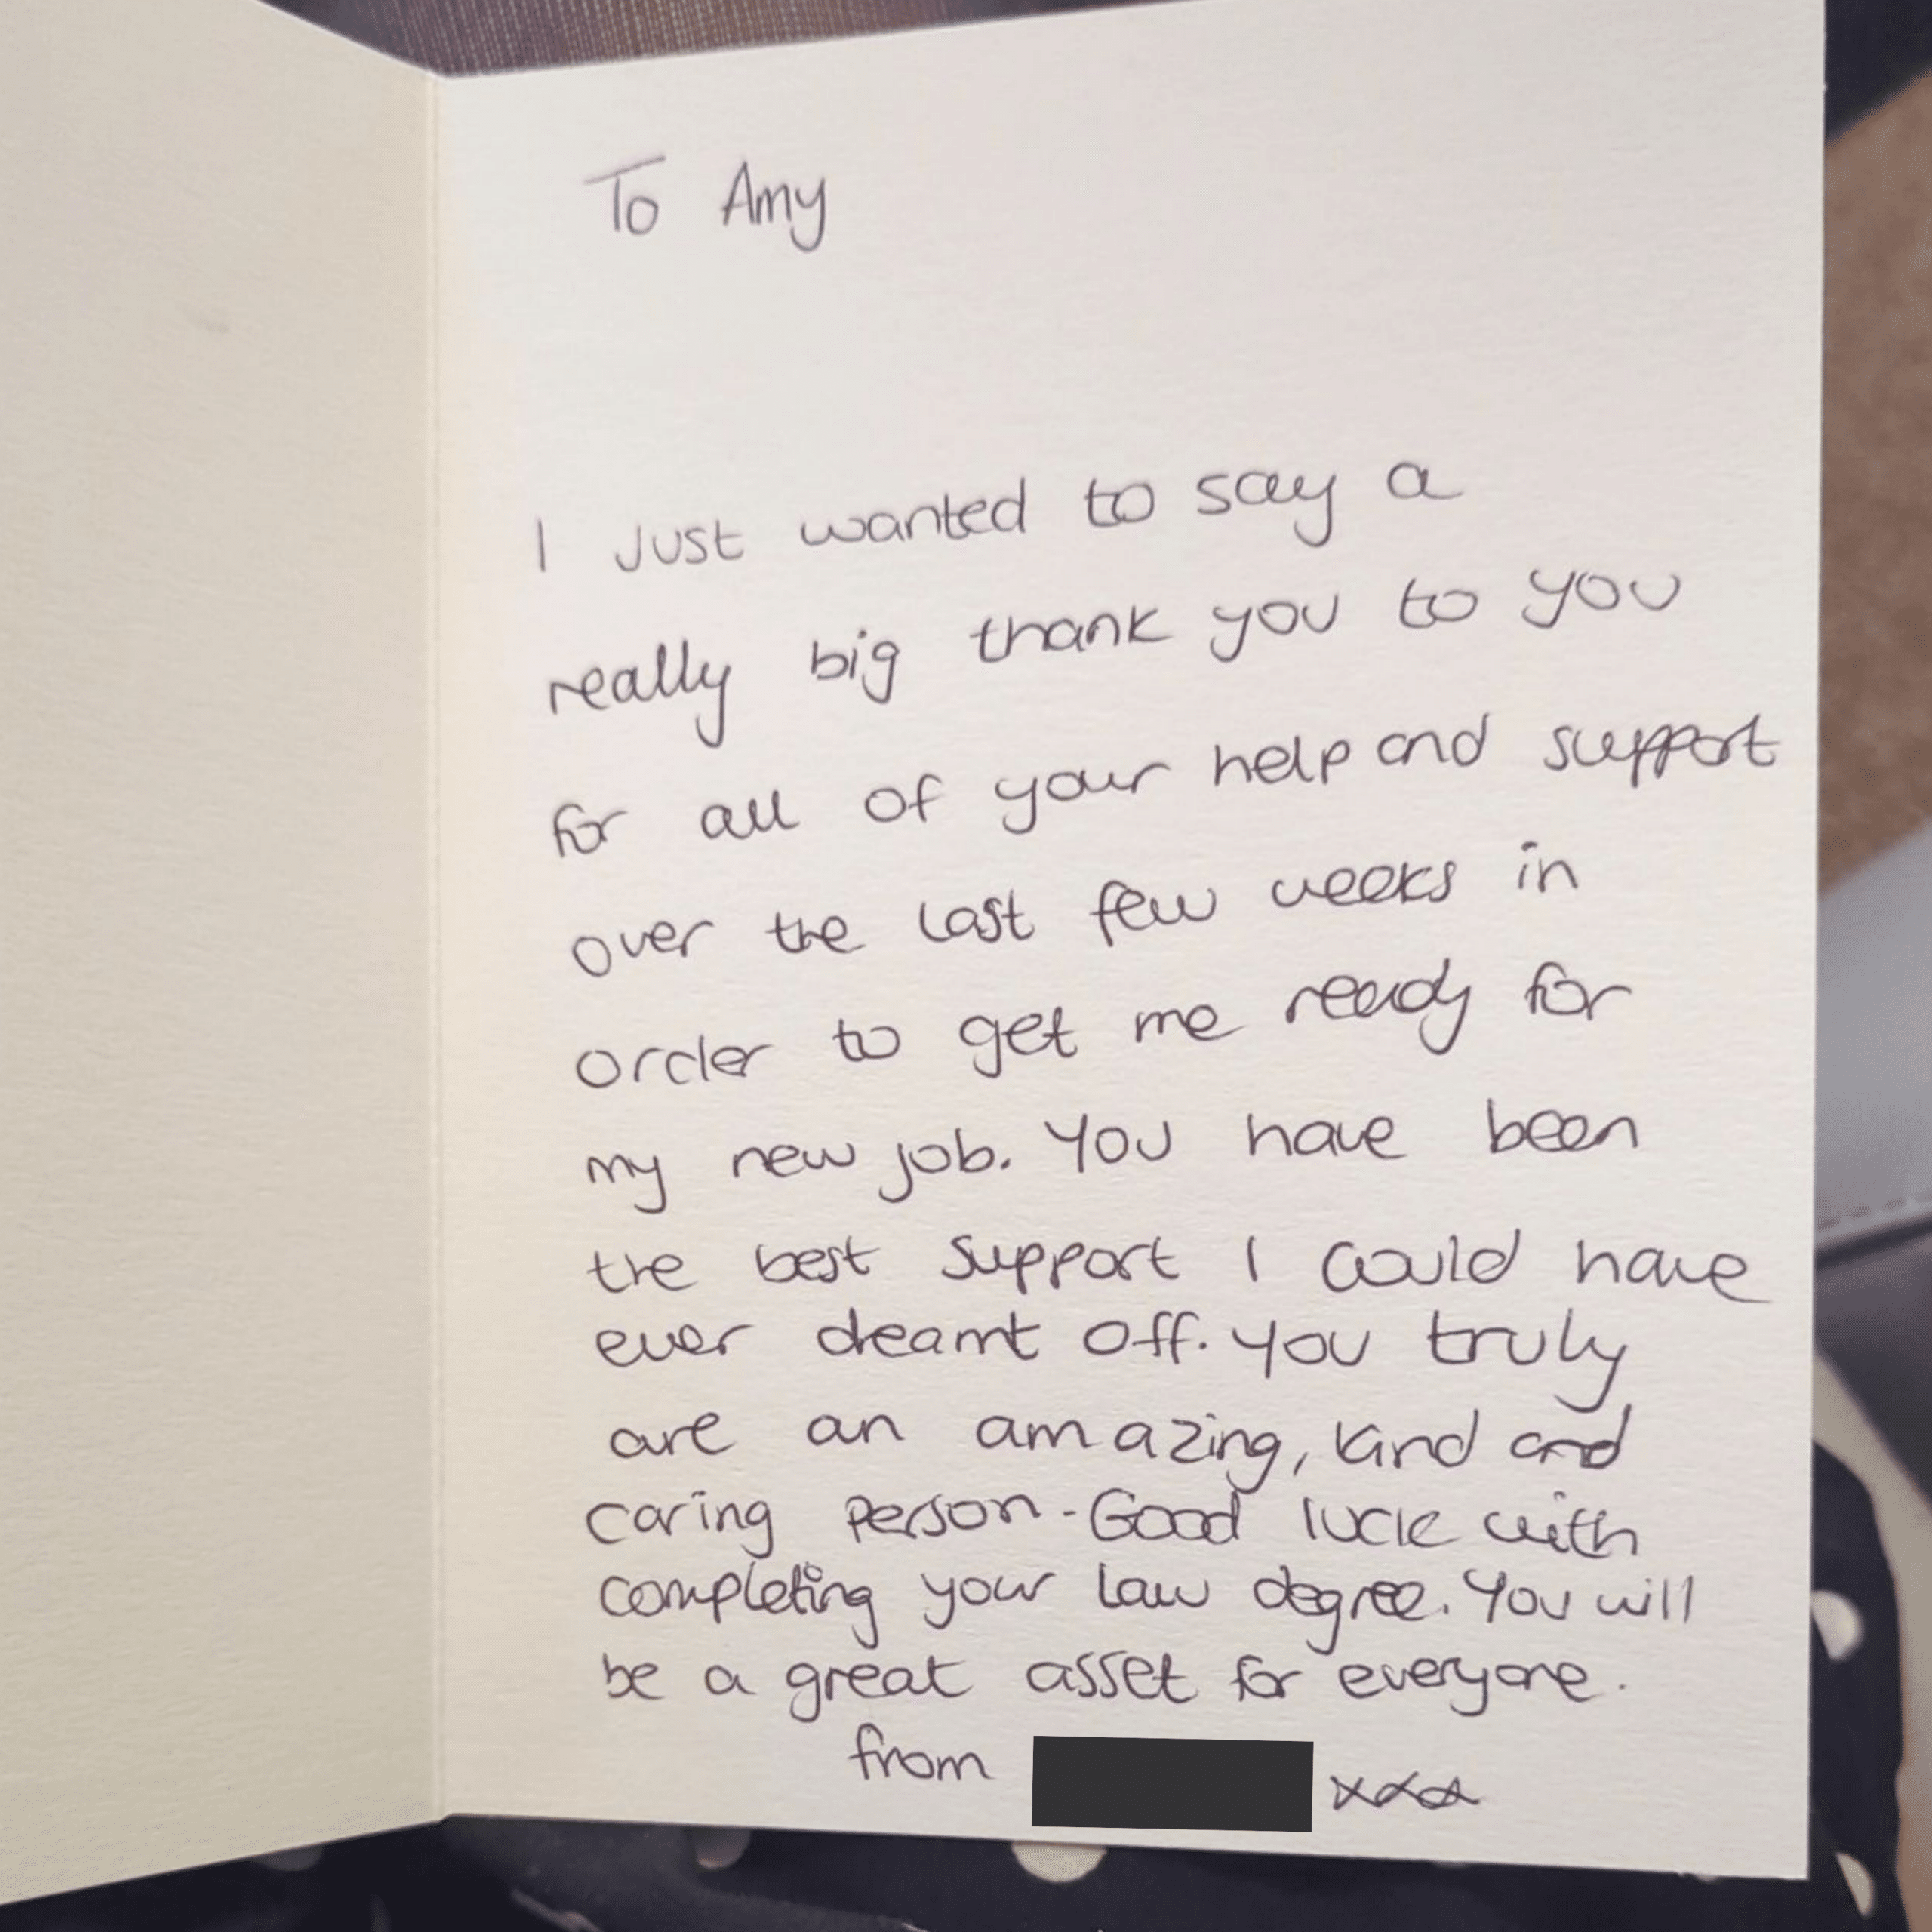 To Amy
I Just wanted to say a
really big thank you to you
for all of your help and support
over the last few weeks in
order to get me ready for
my new job. You have been
the best support I could have
ever dreamt off. You truly
are an amazing, kind and
caring person. Good luck with
completing your law degree. You will
be a great asset for everyone.
from xxx